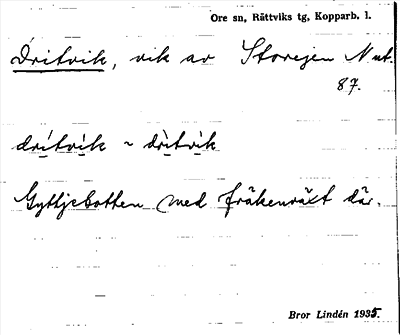 Ore sn, Rättviks tg, Kopparb. l.
Dritvik, vik av Storejen N ut.
87.
dritvik ~ dritvik
Gyttjebotten med fräkenväxt där.
Bror Lindén 1935.